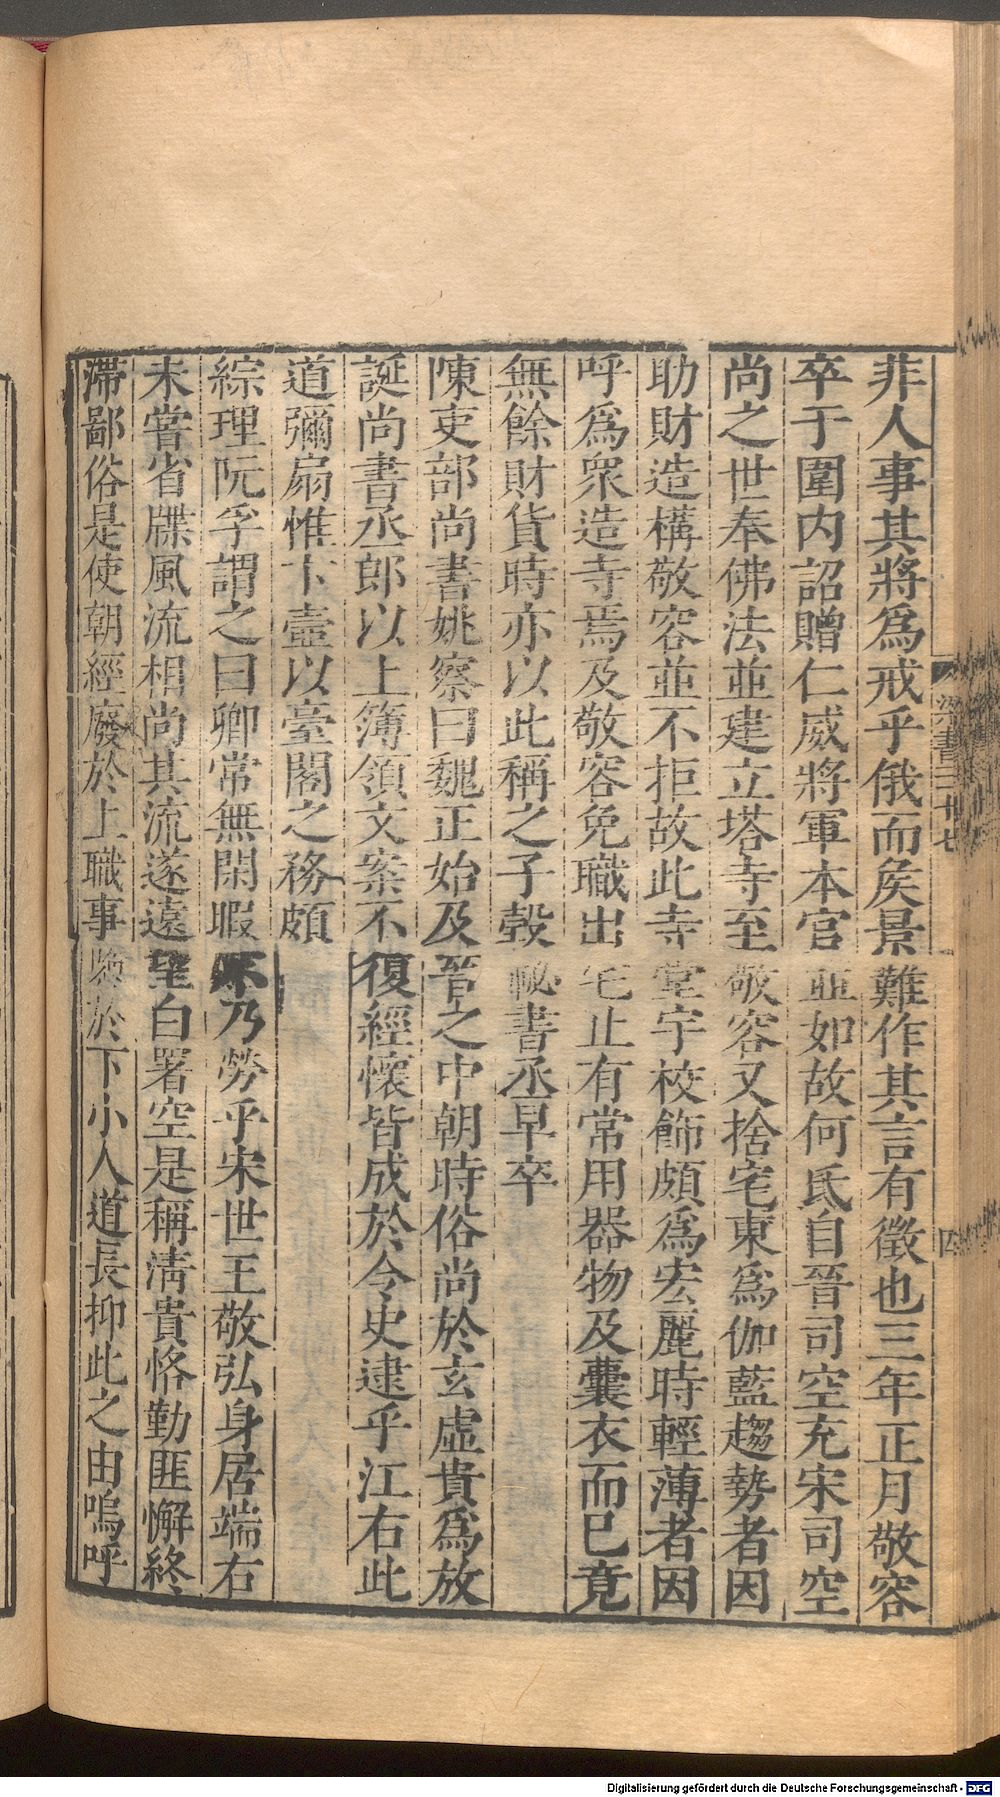 非人事其將爲戒乎俄而矦景難作其言有徵也三年正月敬容
卒于圍内詔贈仁威將軍本官並如故何氏自晉司空充宋司空
尚之世奉佛法並建立塔寺至敬容又捨宅東爲伽藍趨勢者因
助財造構敬容並不拒故此寺堂宇校飾頗爲宏麗時輕薄者因
呼爲衆造寺焉及敬容免職出宅止有常用器物及囊衣而已竟
無餘財貨時亦以此稱之子瑴祕書丞早卒
陳吏部尚書姚察曰魏正始及晉之中朝時俗尚於玄虛貴爲放
誕尚書丞郎以上簿領文案不復經懷皆成於令史逮乎江右此
道彌扇惟卞壼以臺閣之務頗
綜理阮孚謂之曰卿常無閑暇不乃勞乎宋世王敬弘身居端右
未嘗省牒風流相尚其流遂遠望白署空是稱淸貴恪勤匪懈終
滯鄙俗是使朝經廢於上職事隳於下小人道長抑此之由嗚呼
梁書二十七
四
Digitalisierung gefördert durch die Deutsche Forschungsgemeinschaft - DFG